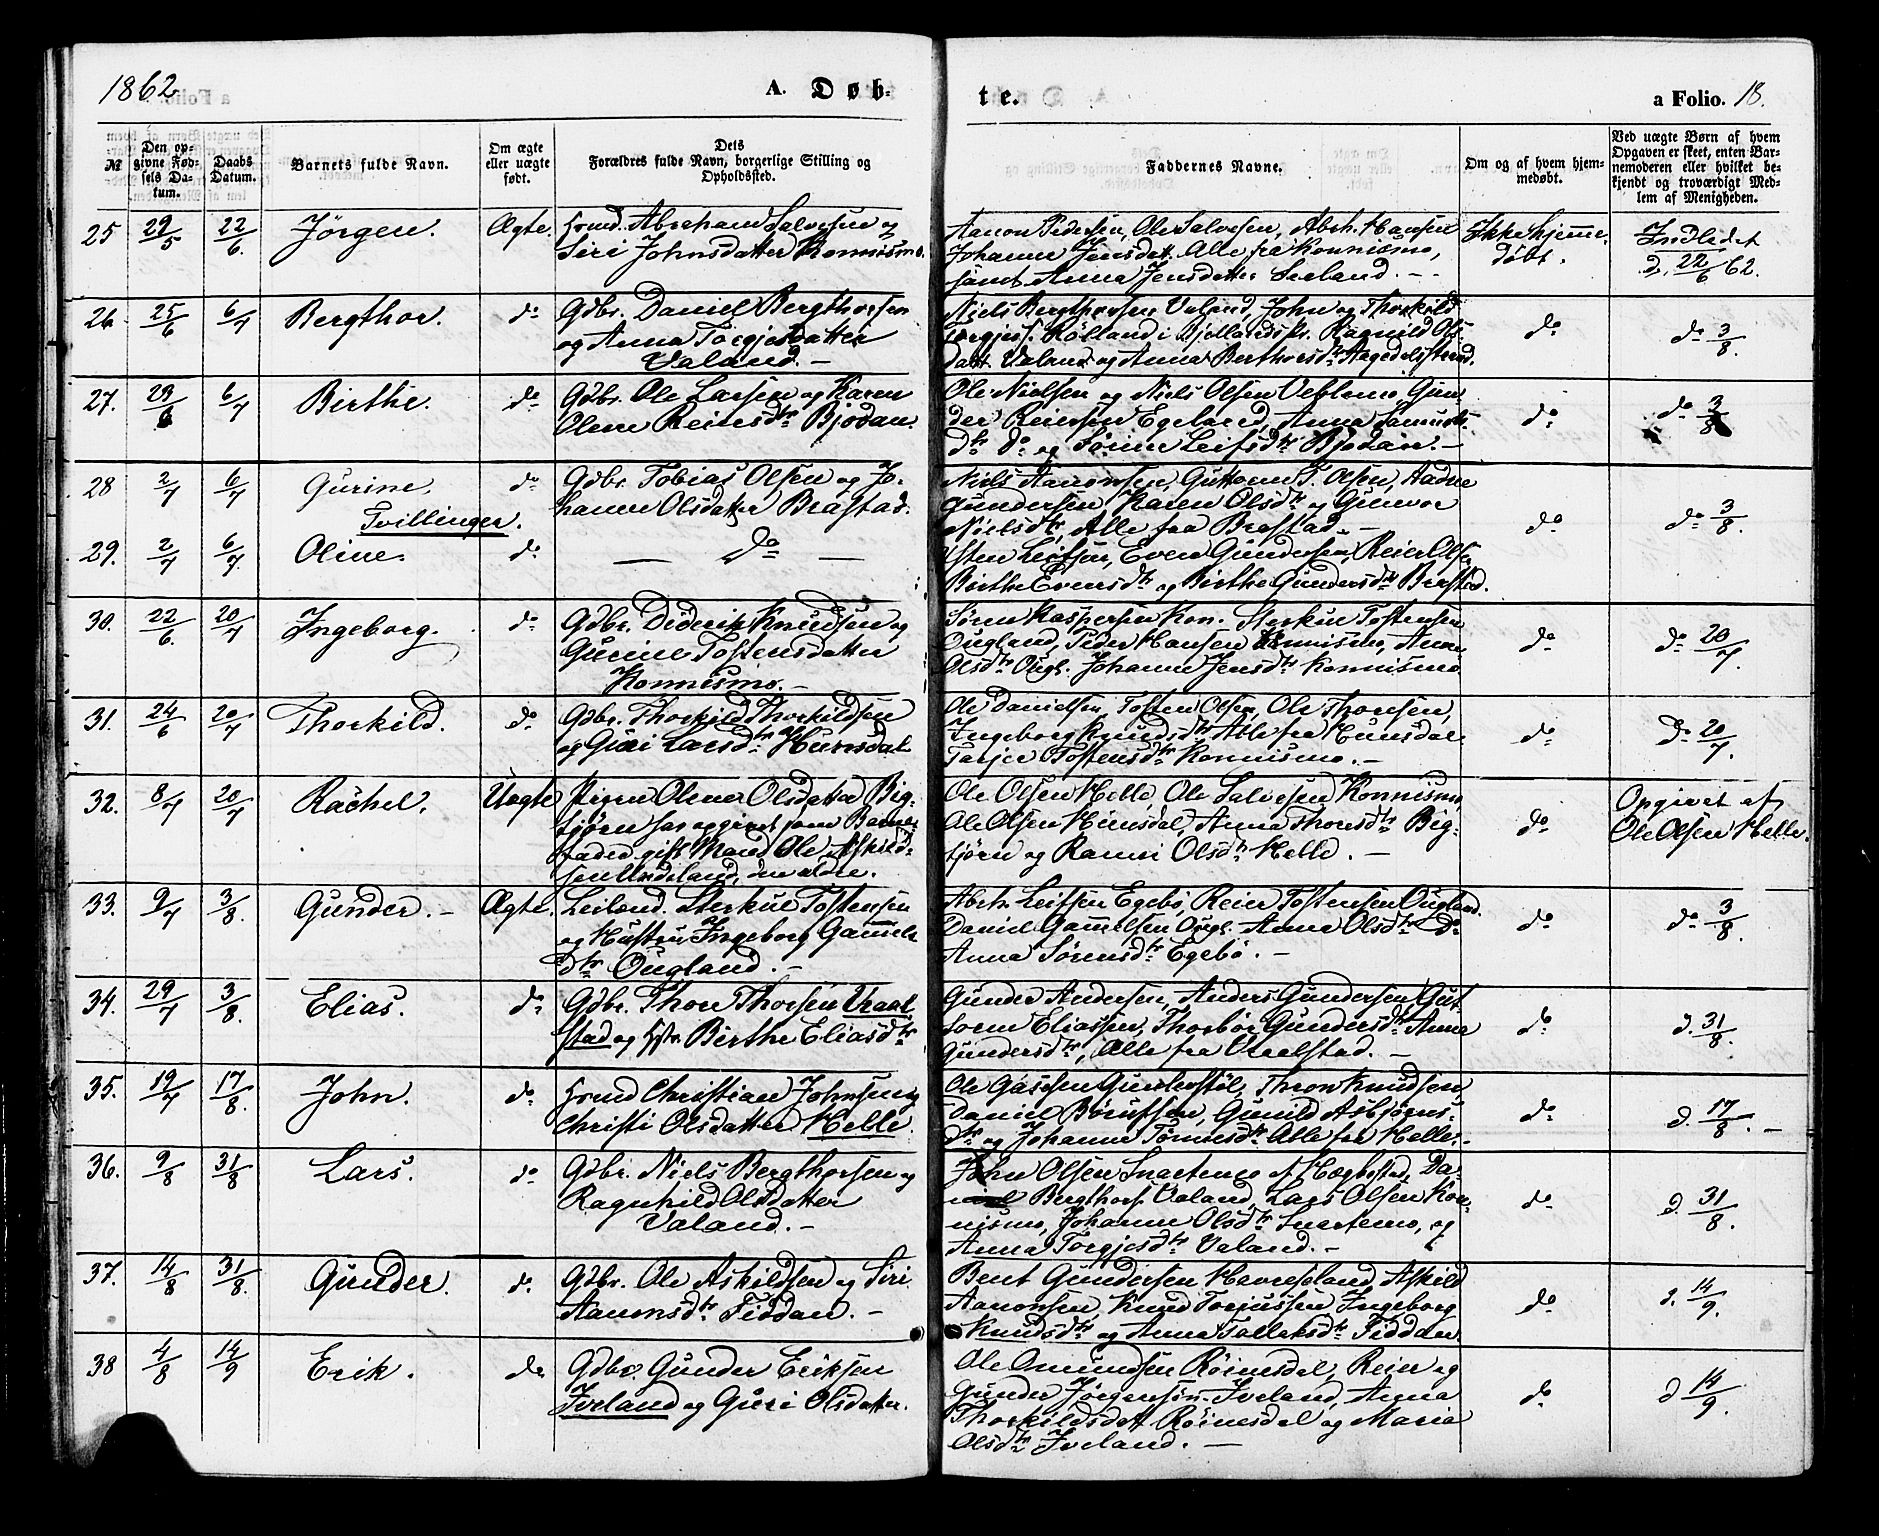 1862
A. Døb-
te.
a Folio. 18.
№
Den opgivne Fødsels Datum.
Daabs Datum.
Barnets fulde Navn.
Om ægte eller uægte født.
Dets Forældres fulde Navn, borgerlige Stilling og Opholdsted.
Faddernes Navne.
Om og af hvem hjemmedøbt.
Ved uægte Børn af hvem Opgaven er skeet, enten Barnemoderen eller hvilket bekjendt og troværdigt Medlem af Menigheden.
25 29/5 22/6 Jörgen. Ægte. Abraham Salvesen og
Siri Johnsdatter Konnismo.
Aanon Pedersen, Ole Salvesen, Abrh. Hansen
Johanne Jensdatt. Alle fra Konnismo,
samt Anna Jensdatter Seeland. -
Ikke hjemme-
döbt.
Indledet
d. 22/6 62.
26. 25/6 6/7 Bergthor. do Gdbr. Daniel Bergthorsen
og Anna Torgjesdatter
Valand. -
Niels Bergthorsen Valand, John og Thorkild
Torgjess. Rölland i Bjellandsk. Ragnild Ols-
datt. Valand og Anna Berthorsdtr
do
do 3/8.
27. 29/6 6/7 Birthe. do Gdbr. Ole Larsen og Karen
Olene Reiersdtr Bjodan.
Ole Nielsen og Niels Olsen Vebbemo, Gun-
der Reiersen Egeland, Anna Samuels-
dtr do og Sörine Leifsdtr Bjodan. -
do
do 3/8
28 2/7 6/7 Gurine. do Gdbr. Tobias Olsen og Jo-
Tvillinger.
hanne Olsdatter Brastad.
Niels Aanonsen, Guttorm T. Olsen, Aadne
Gundersen, Karen Olsdtr og Gunvor
Nielsdtr, Alle fra Brastad. -
do
do 3/8.
29. 2/7 6/7 Oline. do — do —
Östen Leifsen, Even Gundersen, Reier Olsen
Birthe Evensdtr og Birthe Gundersdtr Brastad.
30. 22/6 20/7 Ingeborg. do Gdbr. Diderik Knudsen og
Gurine Tostensdatter
Konnismo. -
Sören Kaspersen Kon. Sterkur Tostensen
Ougland, Peder Hansen Konnismo, Anna
Olsdtr Ougl. Johanne Jensdtr Konnismo
do
do 20/7.
31. 24/6 20/7 Thorkild. do Gdbr. Thorkild Thorkildsen
og Guri Larsdtr Hunsdal
Ole Danielsen, Tosten Olsen, Ole Thorsen,
Ingeborg Knudsdtr Alle fra Hunsdal
Tarjer Tostensdtr Konnismo. -
do
do 20/7.
32. 8/7 20/7 Rachel. Uægte Pigen Olene Olsdatter Big-
tjörn har opgivet som Barne-
fader gift Mand Ole Askild-
sen Underland, den ældre.
Ole Olsen Helle, Ole Salvesen Konnismo,
Ole Olsen Hunsdal, Anna Thorsdtr Big-
tjörn og Ranvei Olsdtr Helle. -
do
Opgivet af
Ole Olsen Helle.
33. 9/7 3/8. Gunder. - Ægte. Leilænd. Sterkur Tostensen
og Hustru Ingeborg Gamels-
dtr Ougland. -
Abrh. Leifsen Egebö, Reier Tostensen Ougland.
Daniel Gamelsen Ougl. Anna Olsdtr do
Anna Sörensdtr Egebö. -
do
do 3/8.
34. 29/7 3/8. Elias. do Gdbr. Thore Thorsen Vraal-
stad og Hstr. Birthe Eliasdtr
Gunder Andersen, Anders Gundersen, Gut-
torm Eliassen, Thorbör Gundersdtr Anna
Gundersdtr, Alle fra Vraalstad. -
do
d. 31/8.
35. 19/7 17/8. John. do Christian Johnsen og
Christi Olsdatter Helle.
Ole Gasesen Thron Knudsen,
Daniel Gunild Asbjörns-
dtr og Johanne Tönnesdtr Alle fra Helle. -
do
d. 17/8. -
36. 9/8 31/8 Lars. do Gdbr. Niels Bergthorsen og
Ragnhild Olsdatter
Valand. -
John Olsen Snartemo af Hægbostad, Da-
niel Bergthors. Valand, Lars Olsen Kon-
nismo, Johanne Olsdtr Snartemo, og
Anna Torgjesdtr Valand. -
do
d. 31/8.
37. 14/8 31/8. Gunder. do Gdbr. Ole Askildsen og Siri
Aanonsdtr Fiddan. -
Bent Gundersen Askild
Aanonsen, Knud Torjussen, Ingeborg
Knudsdtr og Anna Talleksdtr Fiddan
do
d. 14/9.
38 4/8 14/9 Erik. do Gdbr. Gunder Eriksen
Iveland og Guri Olsdatter.
Ole Omundsen Röinesdal, Reier og
Gunder Jörgensön. Iveland, Anna
Thorkildsdatt Röinesdal og Maria
Olsdtr Iveland. -
do
d 14/9.